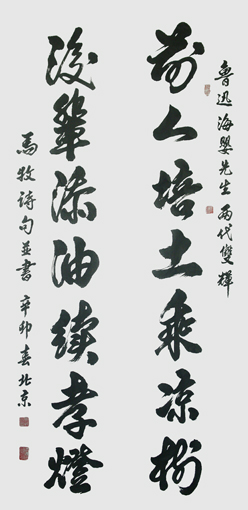 魯迅海嬰先生兩代雙輝
前人培土乘涼樹
後輩添油續孝燈
馬牧詩句並書 辛卯春北京